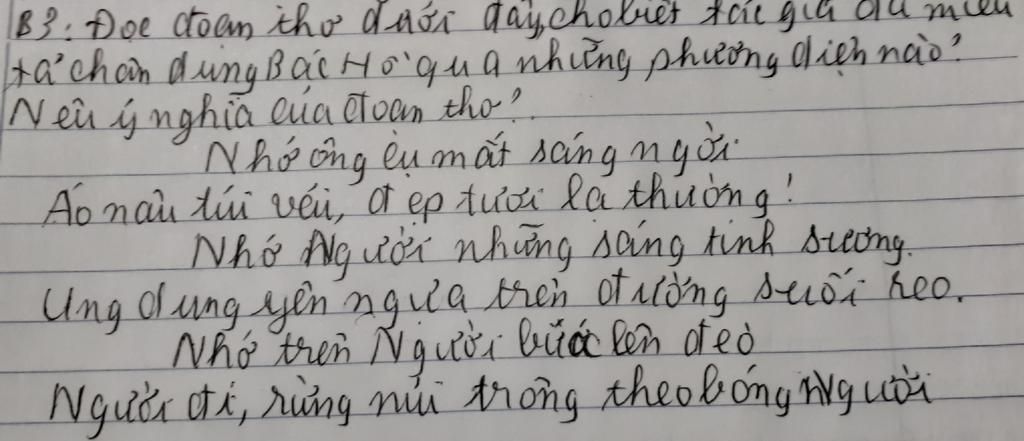 B3: Đọc đoạn thơ dưới đây, cho biết tác giả đã miêu
tả chân dung Bác Hồ qua những phương diện nào?
Nêu ý nghĩa của đoạn thơ?
Nhớ ông cụ mắt sáng ngời
Áo nâu túi vải, đẹp tươi lạ thường!
Nhớ Người những sáng tinh sương.
Ung dung yên ngựa trên đường suối reo.
Nhớ trên Người bước lên đèo
Người đi, rừng núi trông theo bóng Người